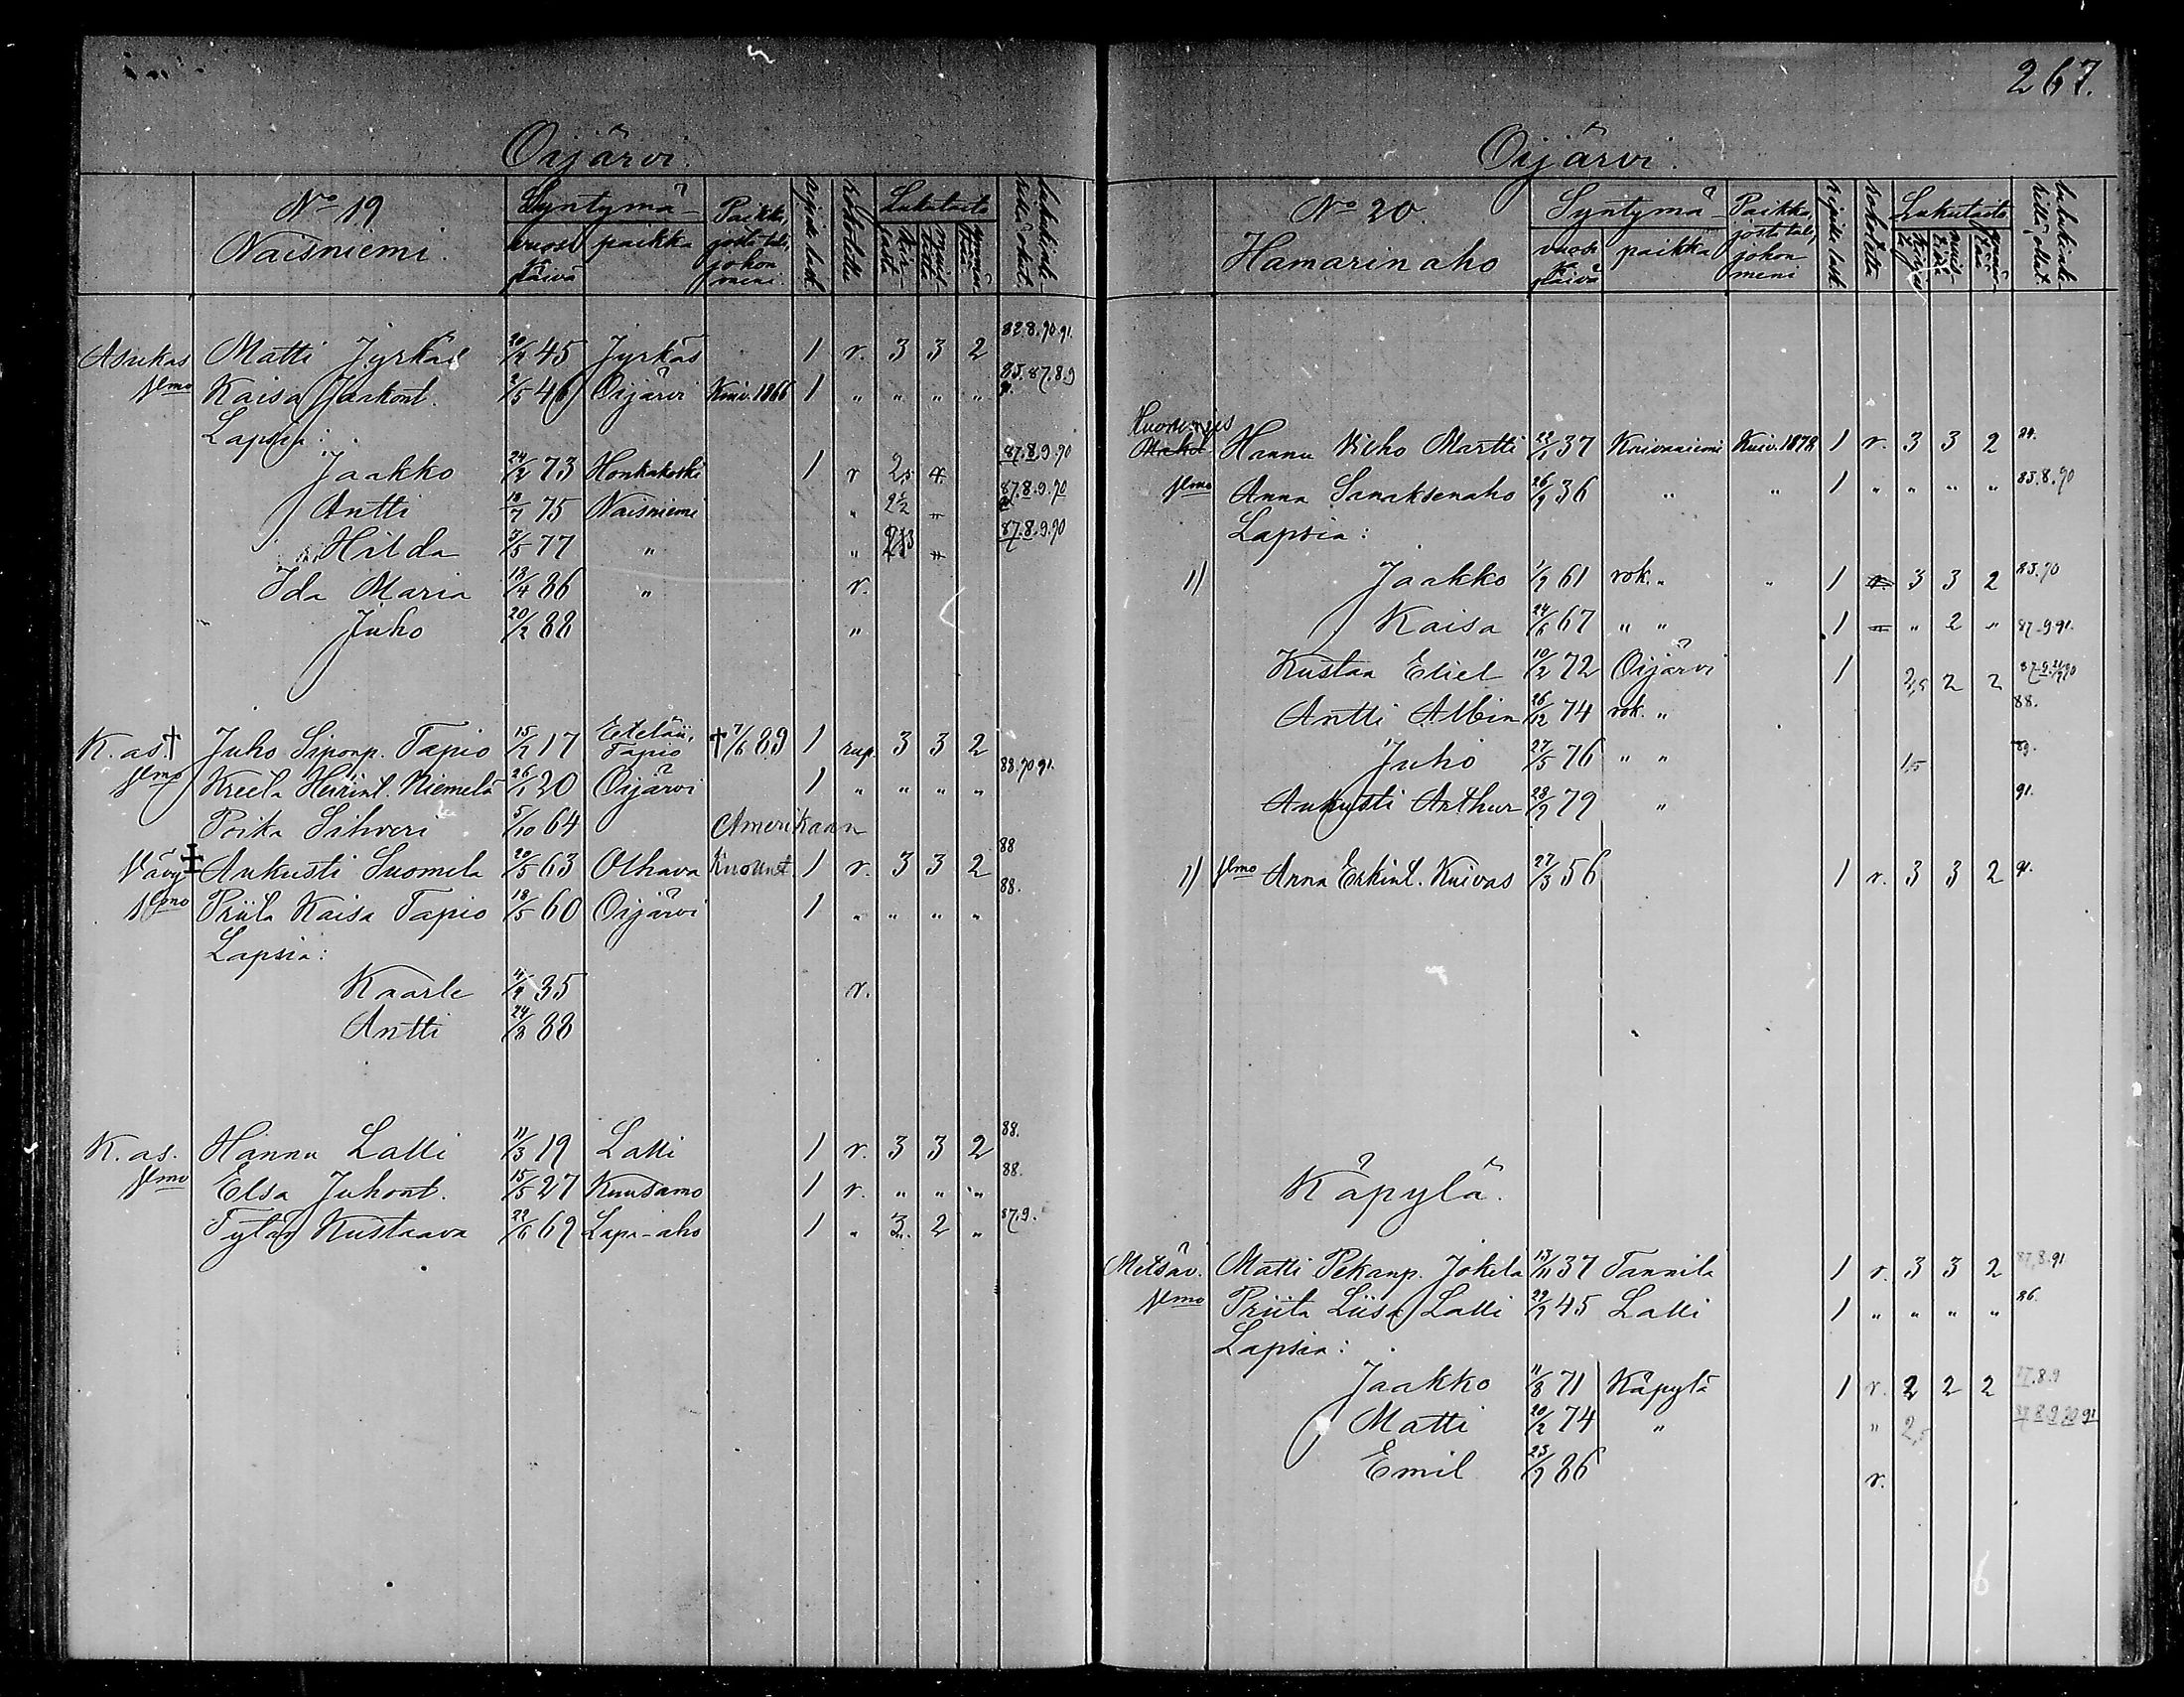 267.
Oijärvi.
No 19
Naisniemi.
Syntymä-
vuosi ja päivä
paikka
Paikka, josta tuli, johon meni.
ripille lask.
rokotettu
Lukutaito
kirjasta
muistista
ymmärrys
lukukink. millä ollut.
82.8.90.91.
Asukas Matti Jyrkäs 20/4 45 Jyrkäs 1 r. 3 3 2
vmo Kaisa Jaakont. 2/5 46 Oijärvi Kuiv. 1866 1 " " " " 85.87.8.9
Lapsia:
Jaakko 24/2 73 Honkakoski 1 r 2,5 87.8.9.90
Antti 18/7 75 Naisniemi " 2½ 87.8.9.90
Hilda 3/5 77 " " 87.8.9.90
Ida Maria 13/4 86 " r.
Juho 20/2 88 "
K. as. † Juho Siponp. Tapio 15/7 17 Etelän, Tapio † 7/6 89 1 rup. 3 3 2
vmo Kreeta Heikint. Niemelä 26/1 20 Oijärvi 1 " " " " 88.90 91.
Poika Sihveri 5/10 64 Amerikaan
Vävy ‡ Aukusti Suomela 20/5 63 Olhava Kuollut 1 r. 3 3 2 88
vmo Priita Kaisa Tapio 18/5 60 Oijärvi 1 " " " " 88.
Lapsia:
Kaarle 4/4 85 r.
Antti 24/8 88
K. as. Hannu Lalli 11/3 19 Lalli 1 r. 3 3 2 88.
vmo Elsa Juhont. 15/5 27 Kuusamo 1 r. " " " 88.
Tytär Kustaava 22/6 69 Lapi-aho 1 " 3 2 " 87.9.
Oijärvi.
No 20.
Hamarinaho
Syntymä-
vuosi ja päivä
paikka
Paikka, josta tuli, johon meni
ripille lask.
rokotettu
Lukutaito
kirjasta
muistista
ymmärrys
lukukink. millä ollut.
Huonemies
Mäkel Hannu Vieho Martti 22/1 37 Kuivaniemi Kuiv. 1878 1 r. 3 3 2
vmo Anna Sanaksenaho 26/9 36 " " 1 " " " " 85.8.90
Lapsia:
1) Jaakko 1/9 61 rok. " " 1 r. 3 3 2 85.90
Kaisa 24/6 67 " " 1 " " 2 " 87.9.91.
Kustaa Eliel 10/2 72 Oijärvi 1 2,5 2 2
Antti Albin 26/12 74 rok. " 88.
Juho 27/5 76 " " 1,5 89.
Aukusti Arthur 28/9 79 " 91.
1) vmo Anna Erkint. Kuivas 27/3 56 1 r. 3 3 2 91.
Käpylä.
Metsäv. Matti Pekanp. Jokela 13/11 37 Tannila 1 r. 3 3 2 87.8.91
vmo Priita Liisa Lalli 29/9 45 Lalli 1 " " " " 86.
Lapsia:
Jaakko 11/8 71 Käpylä 1 r. 2 2 2 87.8.9
Matti 20/2 74 " " 2,5 87.8.9.90 91
Emil 23/9 86 r.